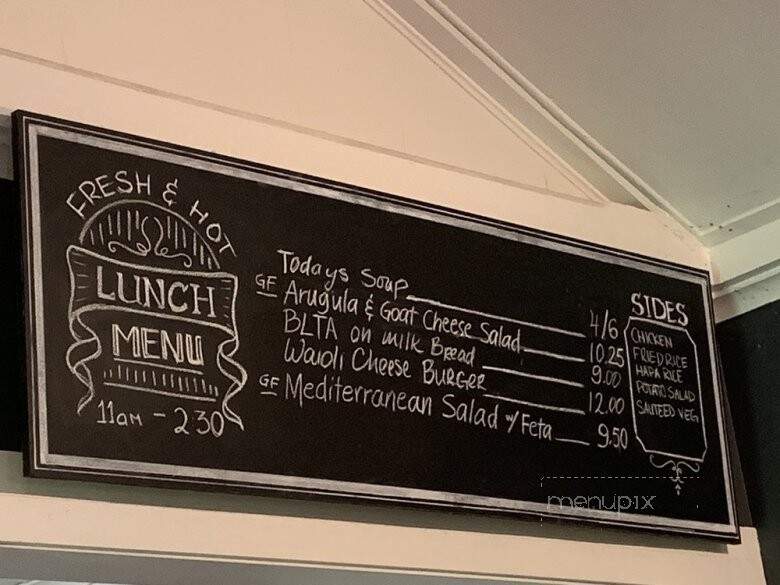 FRESH & HOT
LUNCH
MENU
11am - 230
Todays Soup 4/6
GF Arugula & Goat Cheese Salad 10.25
BLTA on milk Bread 9.00
Waioli Cheese Burger 12.00
GF Mediterranean Salad w/ Feta 9.50
SIDES
CHICKEN
FRIED RICE
HAPA RICE
POTATO SALAD
SAUTEED VEG
menupix